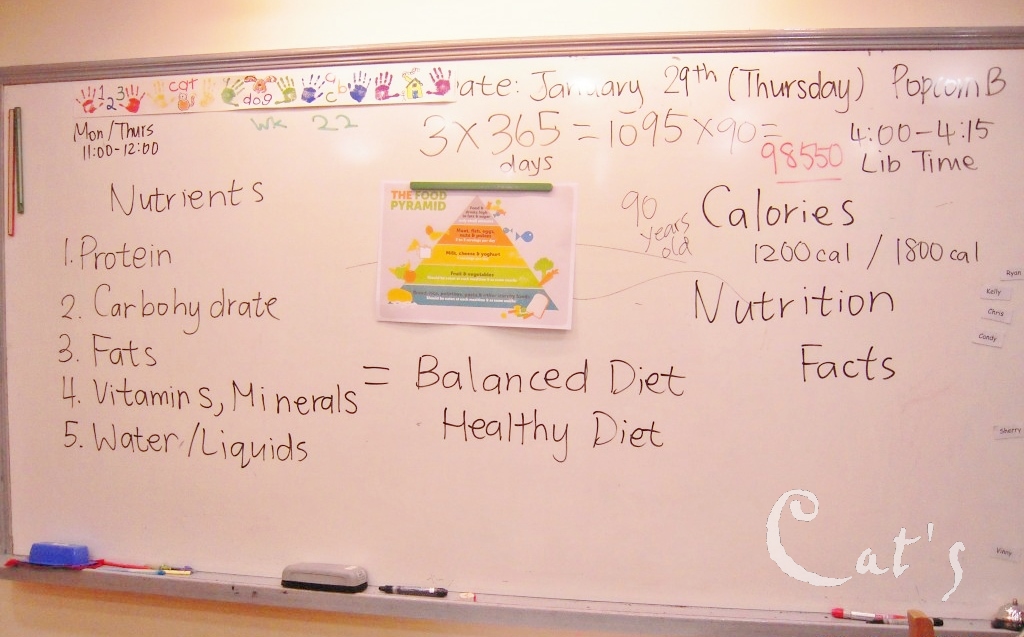 1 2 3
2
cat
dog
a b
c
ate: January 29th (Thursday) Popcorn B
Mon/Thurs
11:00-12:00
WK 22
3 X 365 = 1095 X 90 =
days
98550
4:00-4:15
Lib Time
Nutrients
1. Protein
2. Carbohydrate
3. Fats
4. Vitamins, Minerals
5. Water/Liquids
= Balanced Diet
Healthy Diet
THE FOOD
PYRAMID
Meat, fish, eggs,
Milk, cheese & yoghurt
Fruit & vegetables
90
years
old
Calories
1200 cal / 1800 cal
Nutrition
Facts
Ryan
Kelly
Chris
Candy
Sherry
Vinny
Cat's